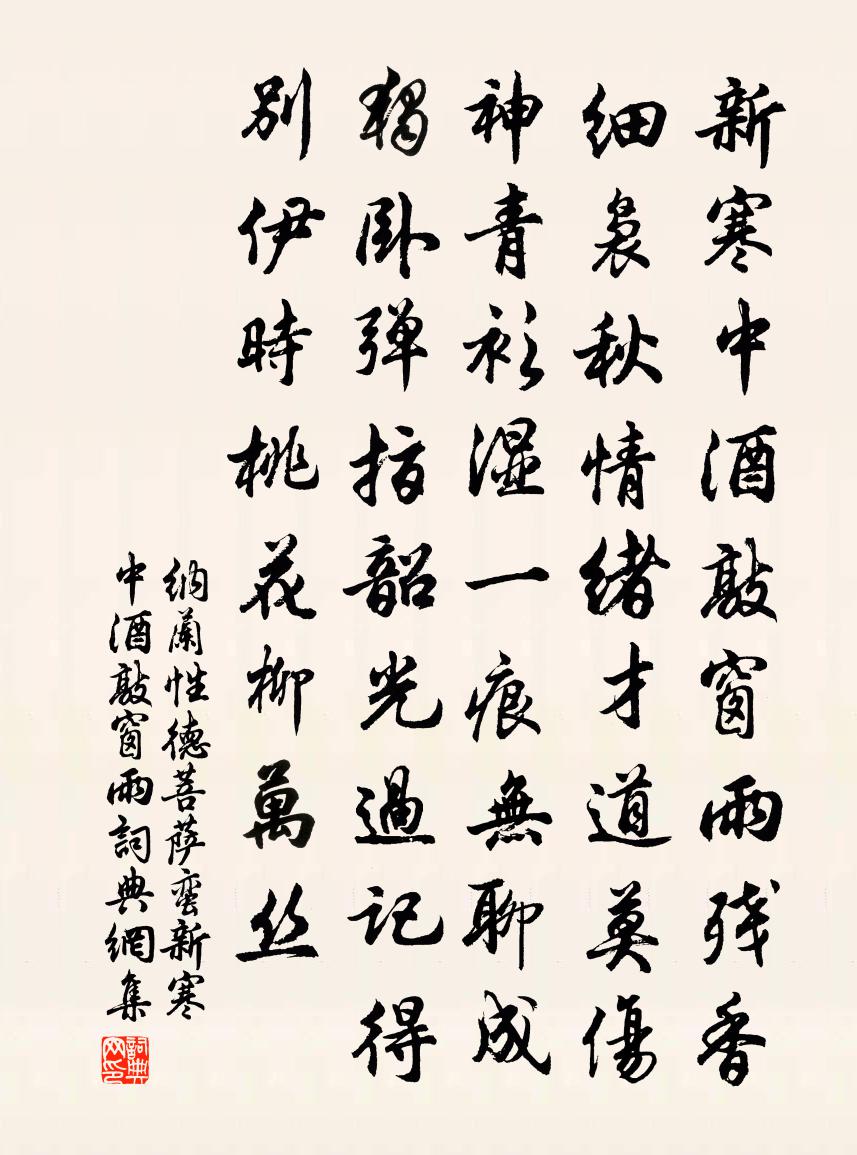 新寒中酒敲窗雨残香
细袅秋情绪才道莫傷
神青衫湿一痕無聊成
獨卧弹指韶光過记得
别伊時桃花柳萬丝
纳蘭性德菩萨蛮新寒
中酒敲窗雨詞典網集
詞典网印